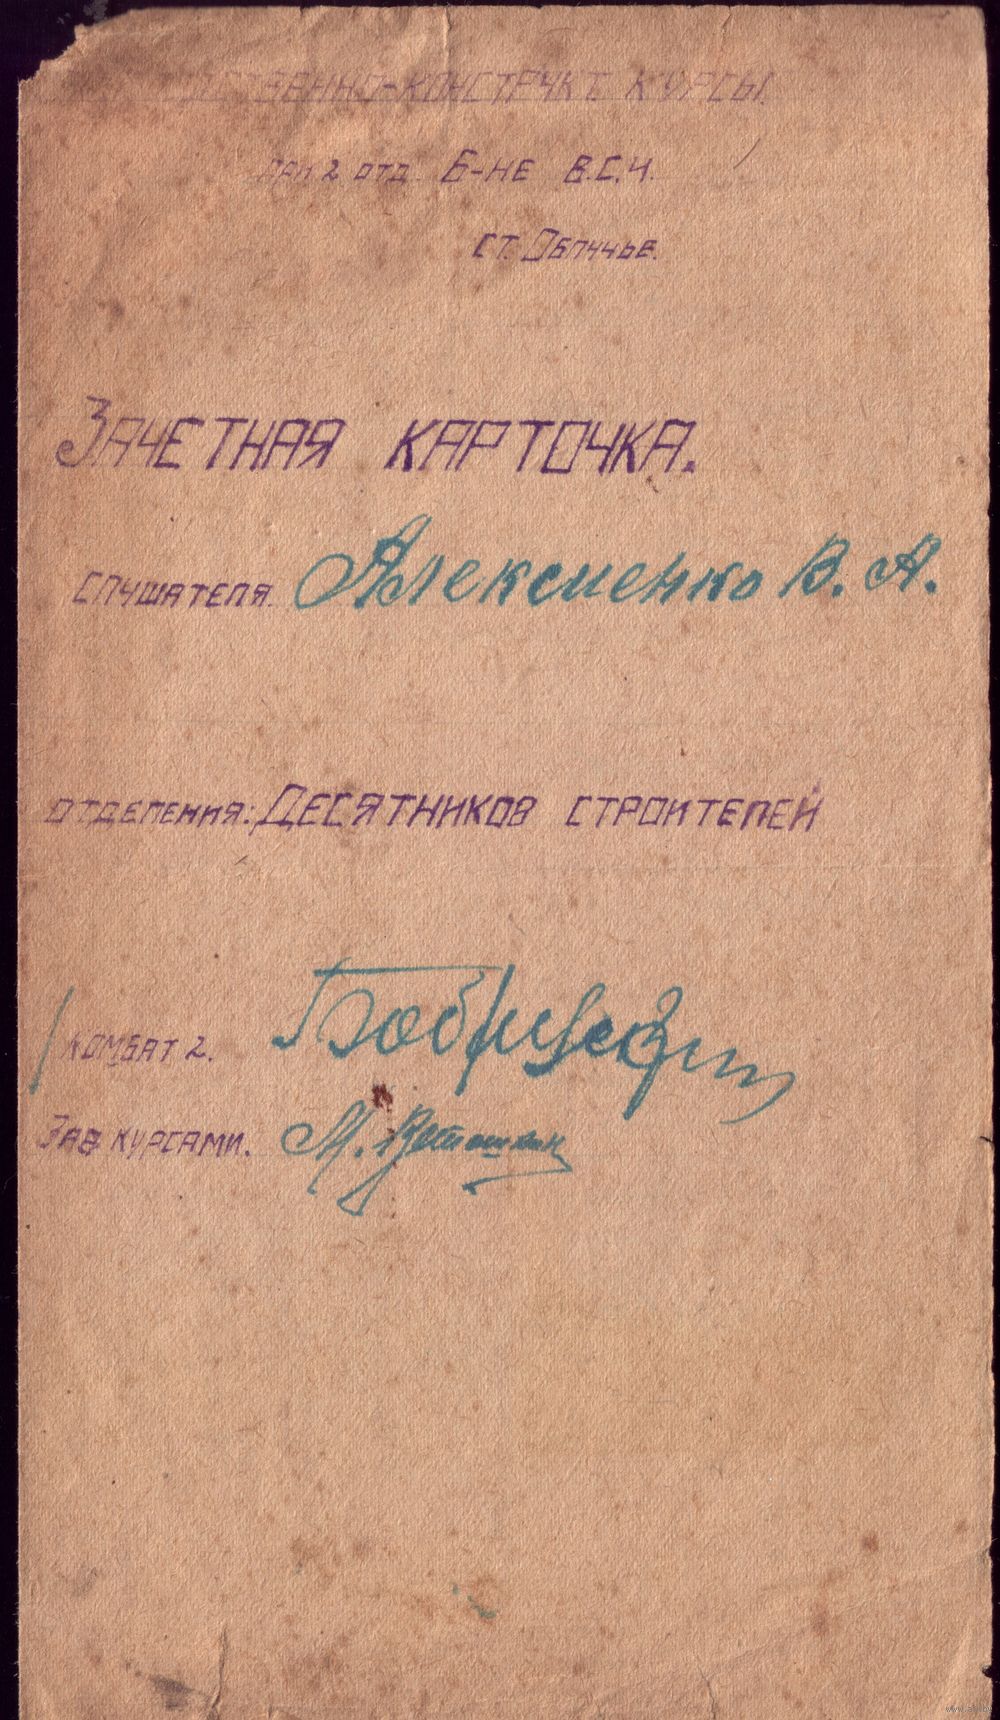 КОНСТРУКТ. КУРСЫ.
при 2 отд. Б-не В.С.Ч.
ст. Облучье.
Зачетная карточка.
слушателя. Алексиенко В. А.
отделения: Десятников строителей
Комбат 2.
Зав курсами. М.